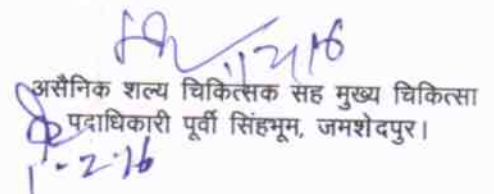 1/2/16
असैनिक शल्य चिकित्सक सह मुख्य चिकित्सा
पदाधिकारी पूर्वी सिंहभूम, जमशेदपुर।
1-2-16